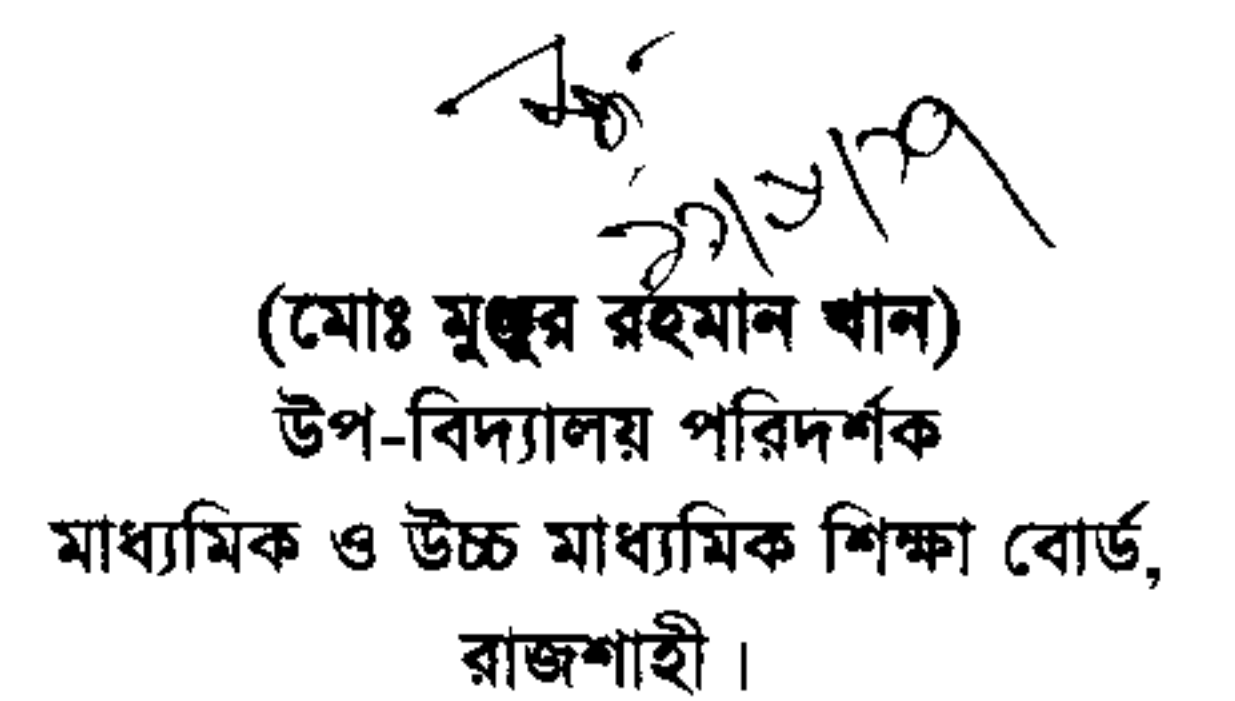 (মোঃ মুঞ্জুর রহমান খান)
উপ-বিদ্যালয় পরিদর্শক
মাধ্যমিক ও উচ্চ মাধ্যমিক শিক্ষা বোর্ড,
রাজশাহী।